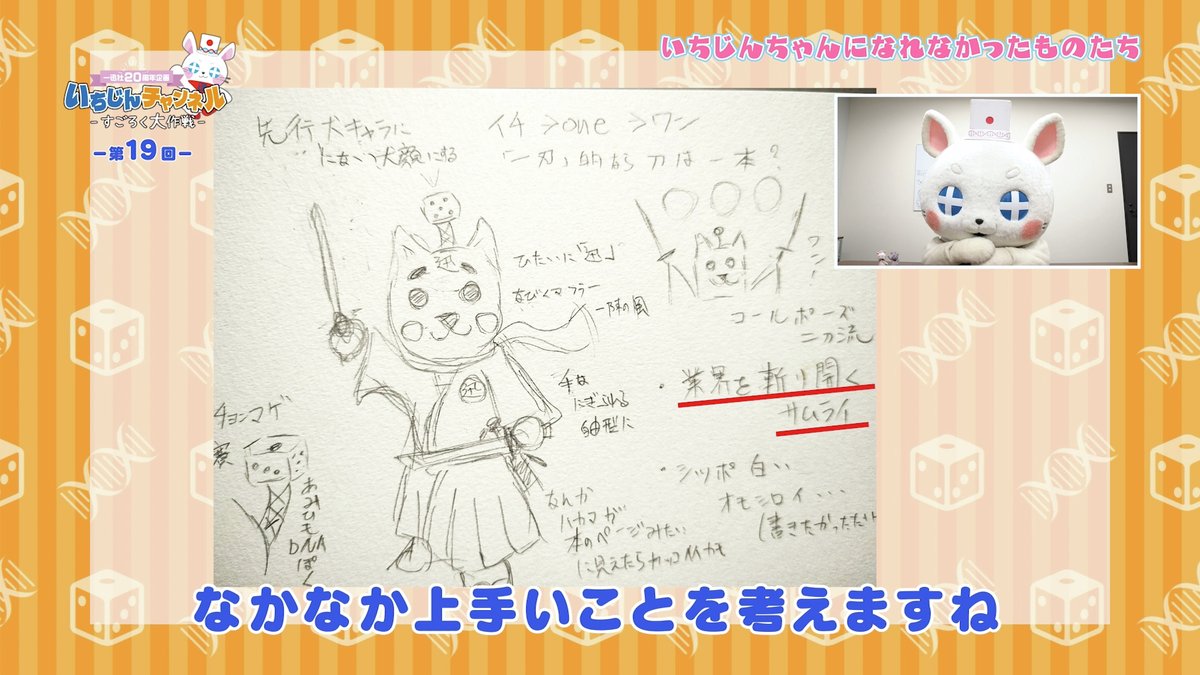 いちじんちゃんになれなかったものたち
一迅社20周年企画
いちじんチャンネル
-すごろく大作戦-
-第19回-
先行犬キャラに
にない犬顔にする
イチ>one>ワン
「一刃」的なら刀は一本?
迅
ひたいに「迅」
なびくマフラー
一陣の風
ワン!
コールポーズ
二刀流
迅
手な
にぎれる
自由型に
・業界を斬り開く
サムライ
チョンマゲ
賽
あみひも
DNA
ぽく
なんか
ハカマが
本のページみたい
に見えたらカッコイイかも
・シッポ白い
オモシロイ・・・
なかなか上手いことを考えますね